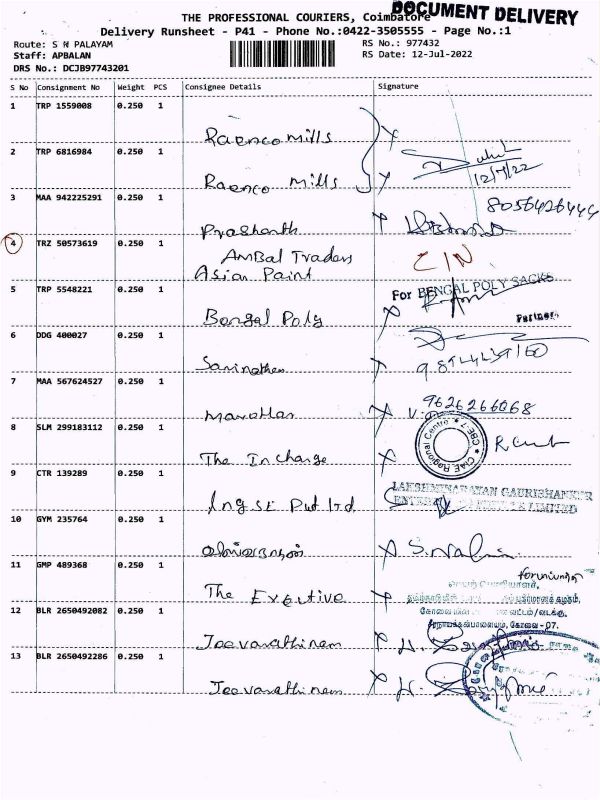 DOCUMENT DELIVERY
THE PROFESSIONAL COURIERS, Coimbatore
Delivery Runsheet - P41 - Phone No.:0422-3505555 - Page No.:1
Route: S N PALAYAM
RS No.: 977432
Staff: APBALAN
RS Date: 12-Jul-2022
DRS No.: DCJB97743201
S No Consignment No Weight PCS Consignee Details Signature
1 TRP 1559008 0.250 1
Raenco Mills
2 TRP 6816984 0.250 1
Raenco Mills
12/7/22
3 MAA 942225291 0.250 1
8056426444
Prashanth
4 TRZ 50573619 0.250 1
AmBal Traders
Asian Paint
CIN
5 TRP 5548221 0.250 1
For BENGAL POLY SACKS
Bengal Poly
Partner
6 DDG 400027 0.250 1
7 MAA 567624527 0.250 1
9626266068
8 SLM 299183112 0.250 1
CIAE Regional Centre * CBE-7 *
The Incharge
9 CTR 139289 0.250 1
LAKSHMINARAYAN GAURISHANKER
LIMITED
Pvt ltd
10 GYM 235764 0.250 1
11 GMP 489368 0.250 1
The Exective
12 BLR 2650492082 0.250 1
கோவை - 07.
Jeevarathinam
13 BLR 2650492286 0.250 1
Jeevarathinam